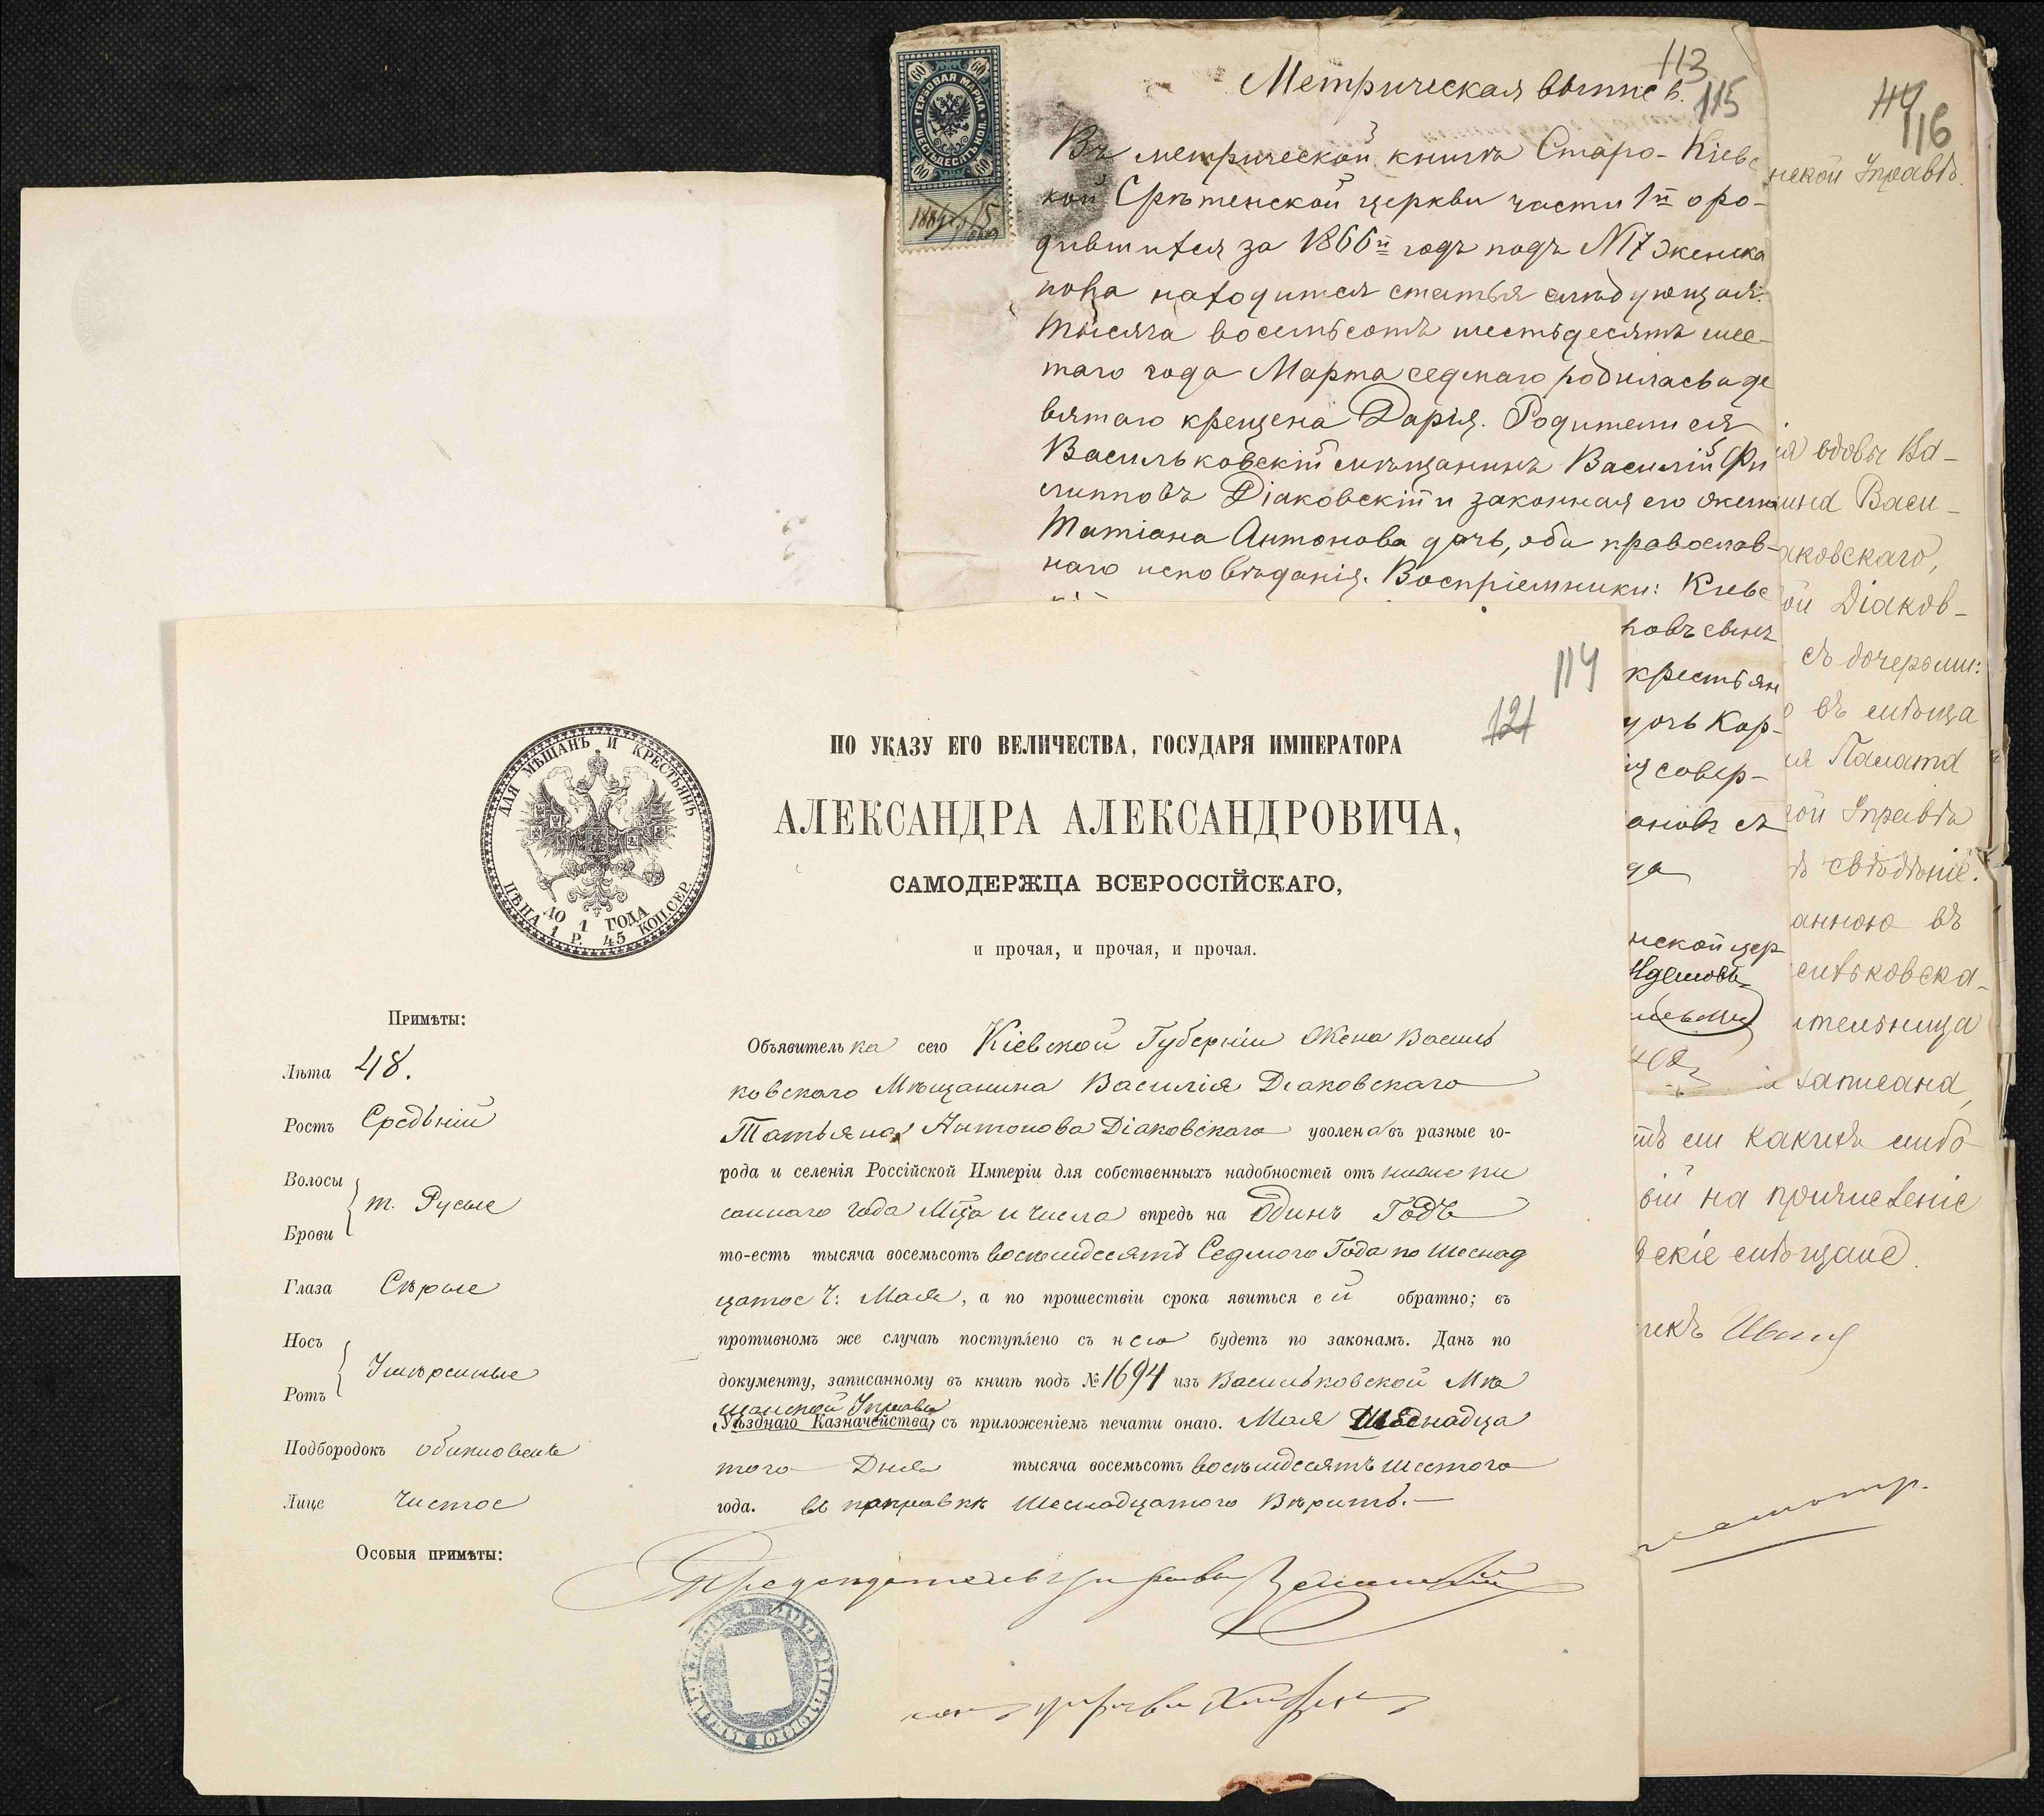 113
115
Метрическая выпись.
Въ метрической книгѣ Старо-Кіевс
кой Срѣтенской церкви части 1й о ро-
дившихся за 1866й годъ подъ №7 женска
пола находится статья слѣдующая:
Тысяча восемьсотъ шестьдесятъ шес-
таго года Марта седмаго родилась а де
вятаго крещена Дарія. Родители ея
Васильковскій мѣщанинъ Василій Фи
липповъ Діаковскій и законная его жена
Татіана Антонова дочь, оба православ-
наго исповѣданія. Воспріемники: Кіевс
повъ сынъ
крестьян
дочь Кар-
совер-
ановъ съ
да
нской цер
60
60
ГЕРБОВАЯ МАРКА
ШЕСТЬДЕСЯТЪ КОП.
60
60
1884
15
116
нской Управѣ.
вдовы Ва-
ина Васи-
аковскаго,
ой Діаков-
съ дочерьми:
въ мѣща
Палата
ой Управѣ
свѣдѣніе.
анною въ
сильковска-
ительница
записана,
ли какихъ либо
ій на причисленіе
скіе мѣщане.
114
121
ДЛЯ МѢЩАНЪ И КРЕСТЬЯНЪ
ДО 1 ГОДА
ЦѢНА 1 Р. 45 КОП. СЕР.
ПО УКАЗУ ЕГО ВЕЛИЧЕСТВА, ГОСУДАРЯ ИМПЕРАТОРА
АЛЕКСАНДРА АЛЕКСАНДРОВИЧА,
САМОДЕРЖЦА ВСЕРОССІЙСКАГО,
и прочая, и прочая, и прочая.
Примѣты:
Лѣта 48.
Ростъ Средьній
Волосы
т. Русые
Брови
Глаза Сѣрые
Носъ
Умѣренные
Ротъ
Подбородокъ обикновенъ
Лице Чистое
Особыя примѣты:
Объявителька сего Кіевской Губерніи Жена Василь
ковского Мѣщанина Василія Діаковскаго
Татьяна Антонова Діаковскаго уволена въ разные го-
рода и селенія Россійской Имперіи для собственныхъ надобностей отъ ниже пи
саннаго года Мѣца и числа впредь на Одинъ Годъ
то-есть тысяча восемьсотъ восемьдесятъ Седмого Года по Шеснад
цатое Ч: Мая, а по прошествіи срока явиться ей обратно; въ
противномъ же случаѣ поступлено съ нею будетъ по законамъ. Данъ по
документу, записанному въ книгѣ подъ № 1694 изъ Васильковской Мѣ
щанской Управы
(Уѣзднаго Казначейства) съ приложеніемъ печати онаго. Мая Шеснадца
того Дня тысяча восемьсотъ восемьдесятъ шестого
года. въ поправкѣ Шеснадцатого Вѣритъ.—
Предсѣдатель Управы